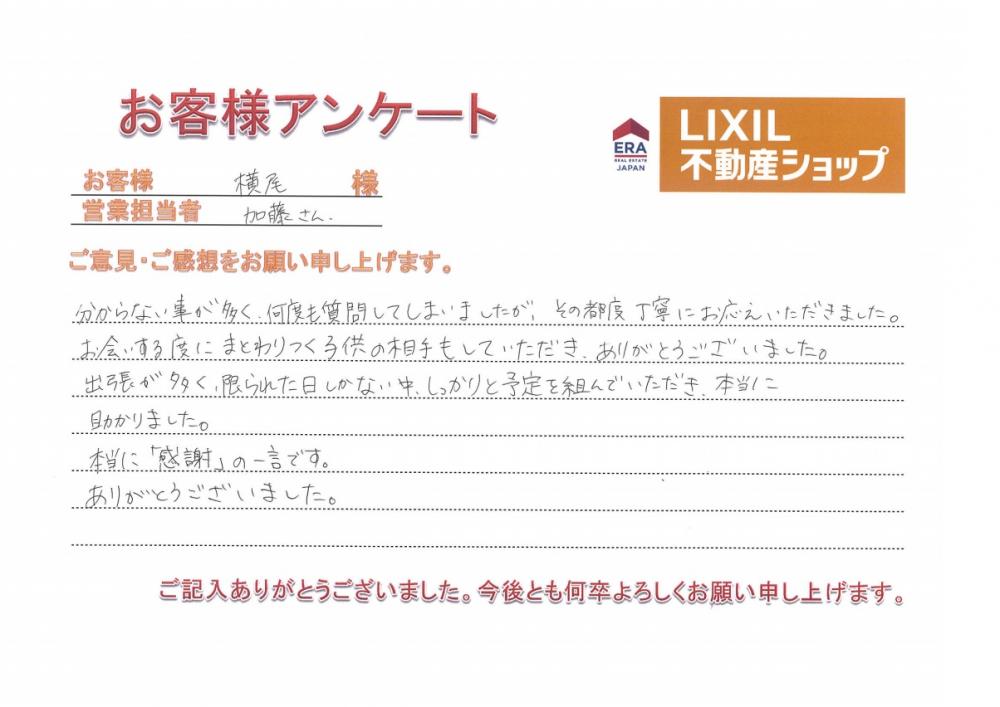 お客様アンケート
LIXIL
不動産ショップ
ERA
REAL ESTATE
JAPAN
お客様 横尾 様
営業担当者 加藤さん.
ご意見・ご感想をお願い申し上げます。
分からない事が多く、何度も質問してしまいましたが、その都度丁寧にお応えいただきました。
お会いする度にまとわりつく子供の相手もしていただき、ありがとうございました。
出張が多く、限られた日しかない中、しっかりと予定を組んでいただき、本当に
助かりました。
本当に「感謝」の一言です。
ありがとうございました。
ご記入ありがとうございました。今後とも何卒よろしくお願い申し上げます。